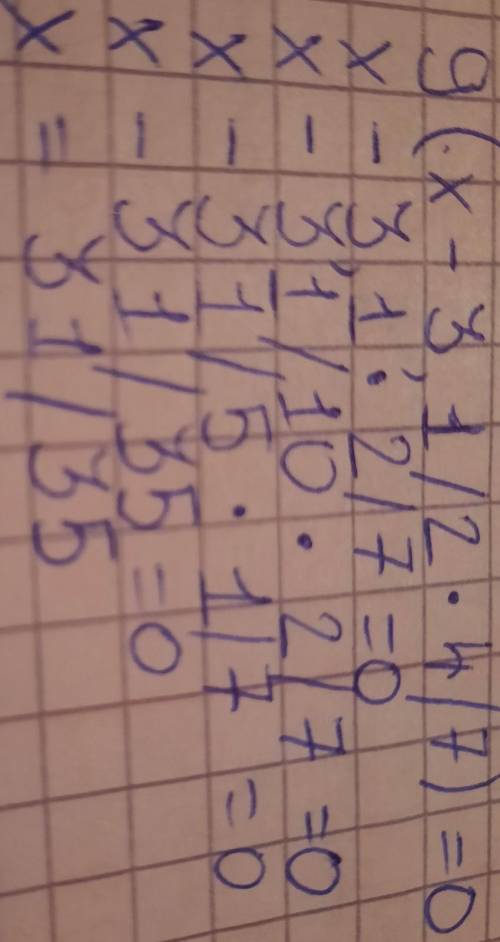 9(x-3,1/2·4/7)=0
x-3,1·2/7=0
x-31/10·2/7=0
x-31/5·1/7=0
x-31/35=0
x=31/35